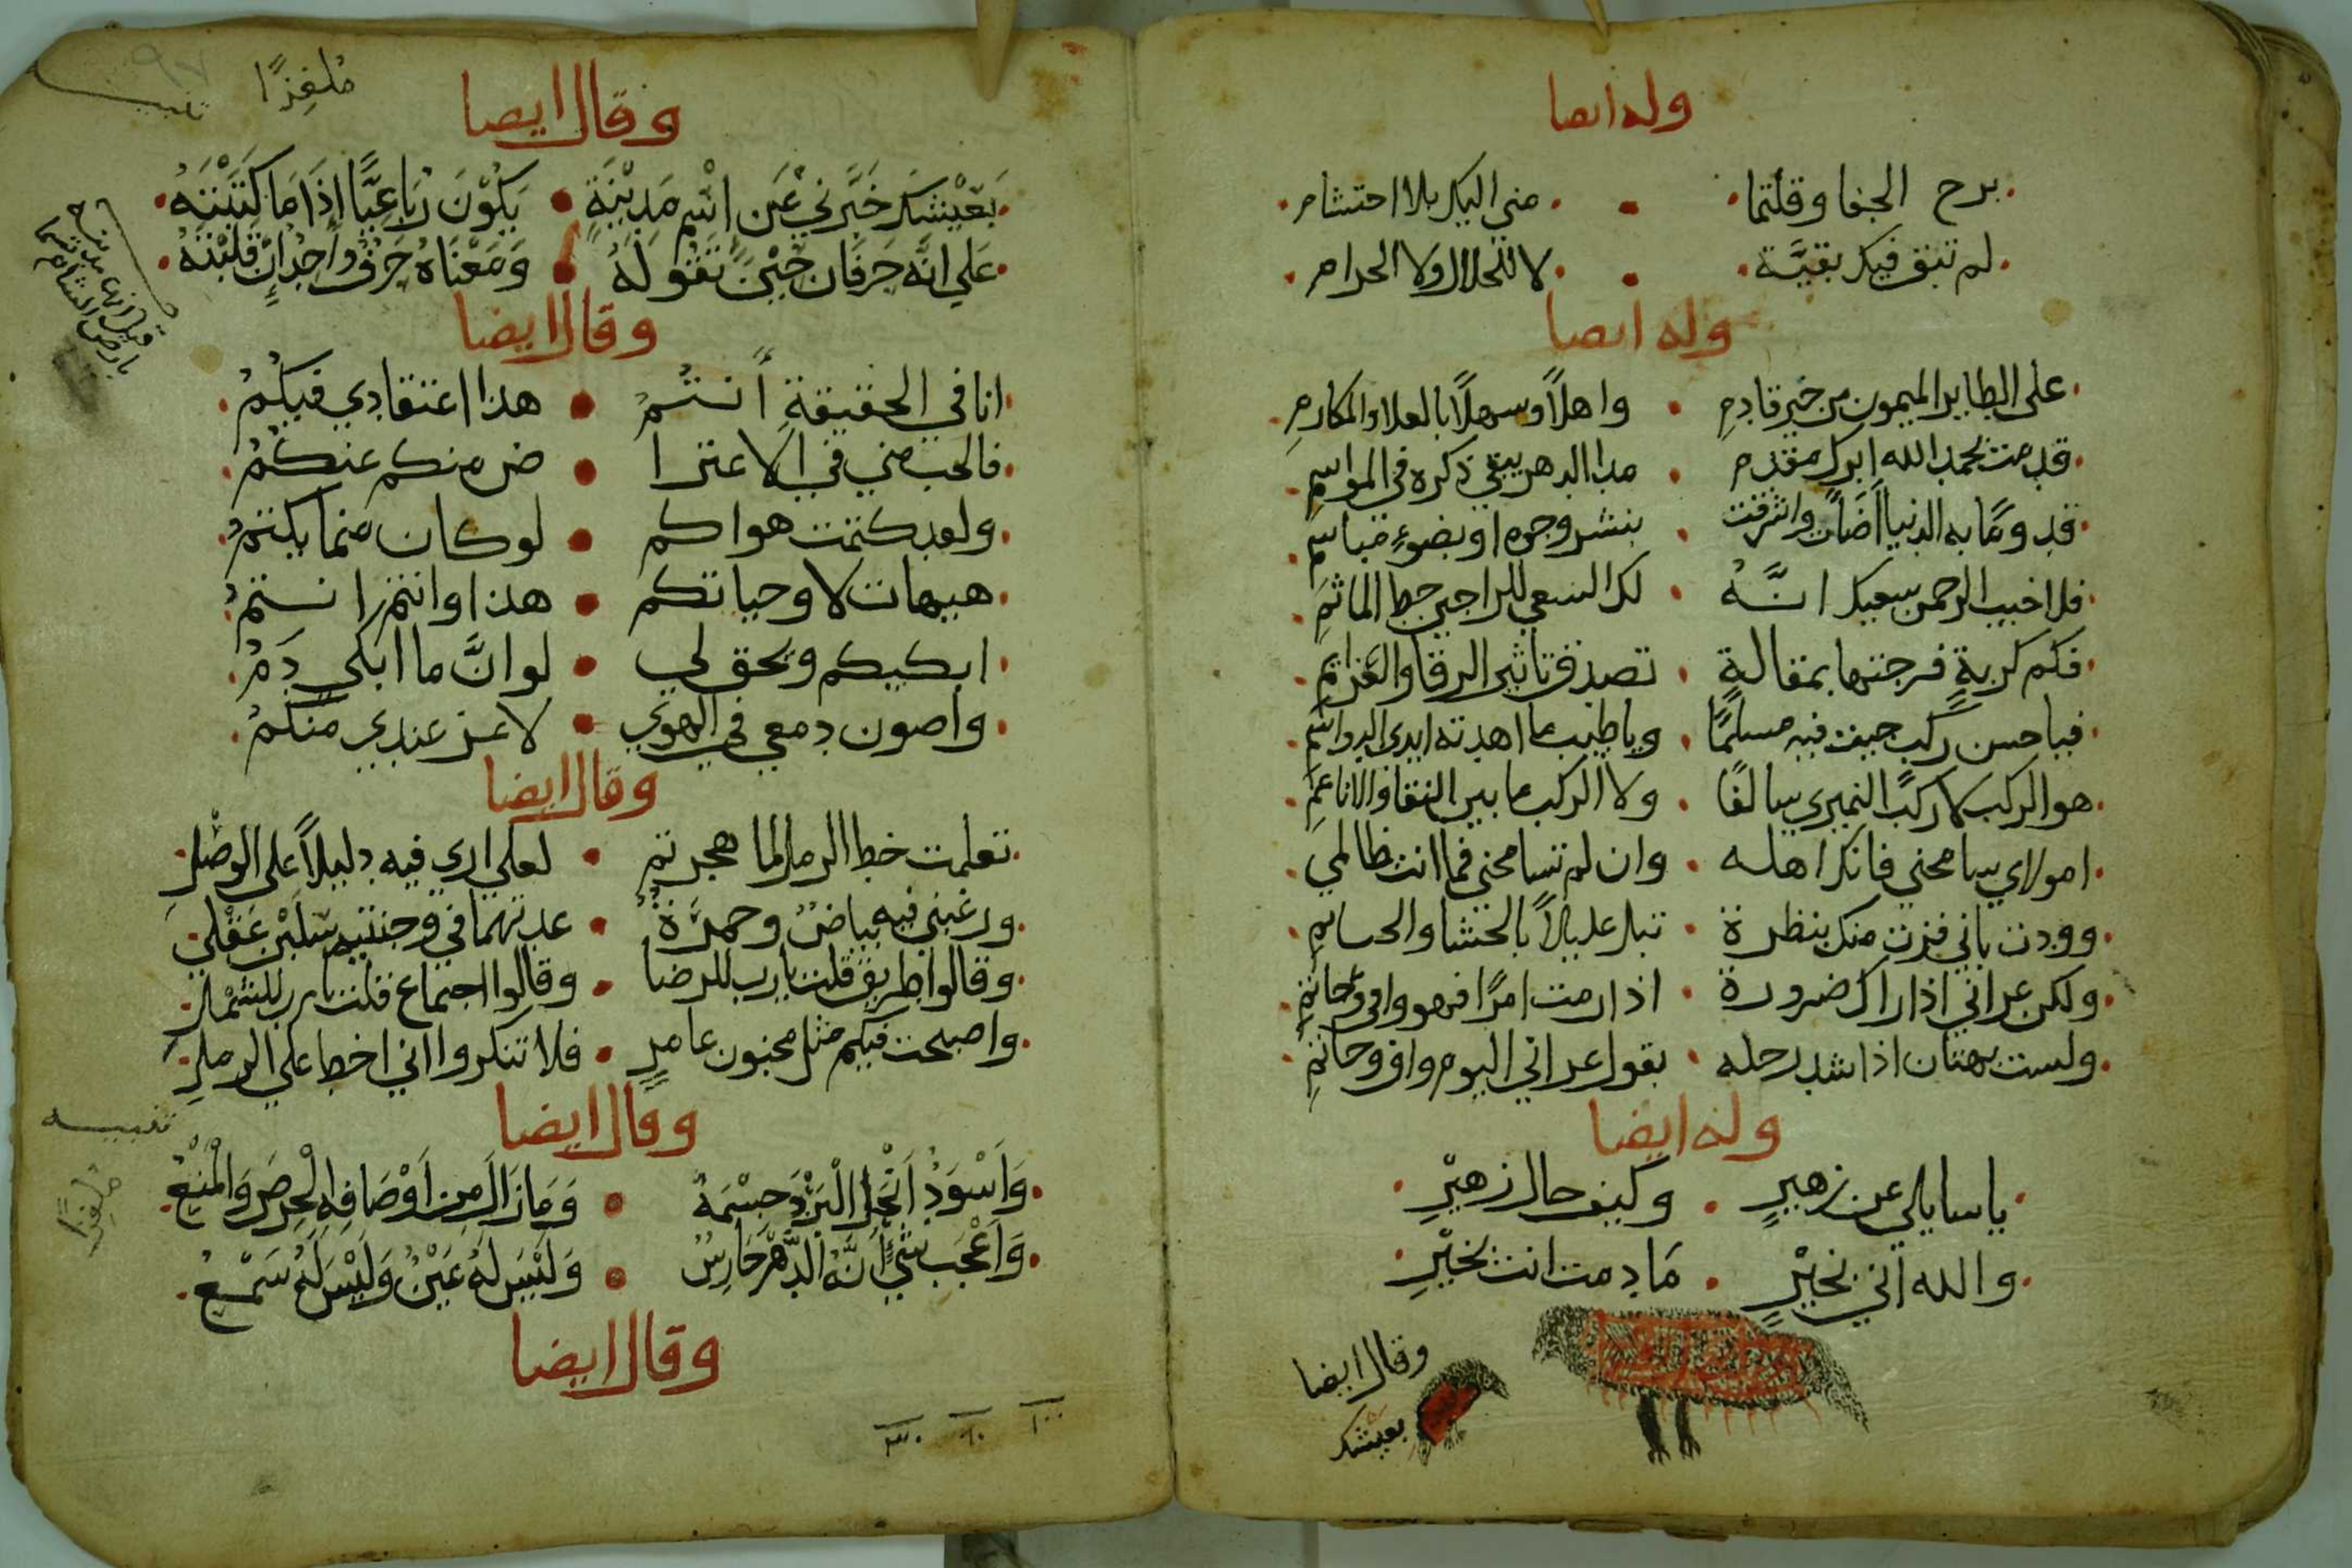 وله ايضا
برح الخفا وقلتما • مني اليك بلا احتشام
لم تبق فيك بقيَّة • لا للحلال ولا الحرام
وله ايضا
على الطاير الميمون من خير قادمِ • واهلاً وسهلاً بالعلا والمكارمِ
قدمت بحمد الله ابرك مقدم • مدا الدهر يبقي ذكره في المواسم
قدومًا به الدنيا اضأت واشرقت • ببشر وجوه او بضوءٍ مباسم
فلا خيب الرحمن سعيك انَّهُ • لك السعي للراجين حط الماثمِ
فكم كربةٍ فرجتها بمقالةٍ • تصدق تاثير الرقا والعزايمِ
فيا حسن ركب جيت فيه مسلمًا • ويا طيب ما اهدته ايدي الرواسمِ
هو الركب لا ركب النميري سالفًا • ولا الركب ما بين النقا والاناعمِ
امولاي سامحني فانك اهله • وان لم تسامحني فما انت ظالمي
ووددت باني فزت منك بنظرة • تبل غليلاً بالحشا والحيازم
ولكن عداني اذا راك ضرورة • اذا رمت امرًا فهو وافي وحاتمِ
ولست بهتان اذا شد رحله • يقول عداني اليوم واق وحاتمِ
وله ايضا
يا سايلي عن زهيرٍ • وكيف حال زهيْرِ
والله اني بخيْرٍ • مَا دمت انت بخيْرِ
وقال ايضا
بعيشك
ملغزًا
وقال ايضا
بَعَيْشكَ خَبّرني عَن اسْم مَدِيْنَةٍ • يَكُوْنَ رُبَاعِيًّا اِذَا مَا كَتَبْتَهُ
عَلي انَّه حَرفَان حَيْنَ تَقُولهُ • وَمَعْنَاهُ حَرْفٌ وَاحدٌ اِن قَلَبْتَهُ
وقال ايضا
انا في الحقيقةِ أنتُمُ • هذا اعتقادي فيكُمُ
فالحب مني في الاعترا • ض منكم عنكمُ
ولقد كتمت هواكم • لو كان مما يكتمُ
هيهات لا وحياتكم • هذا وانتم انتمُ
ابكيكم ويحق لي • لو انَّ ما ابكي دَمُ
واصون دمعي في الهوي • لا عز عندي منكمُ
وقال ايضا
تعلمت خط الرمل لما هجرتم • لعلي اري فيه دليلاً على الوصْلِ
ورغبني فيه بياضٌ وحمرَةٌ • عهدتهما في وجنتيه سَلَبْن عَقْلي
وقالوا طريق قلت يا رب للرضا • وقالوا اجتماع قلت يا رب للشمْلِ
واصبحت فيكم مثل مجنون عامرٍ • فلا تنكروا اني اخط على الرملِ
وقال ايضا
وَاَسْوَدُ اَنْحَل الْبَرْدَ جسْمَهُ • وَمَازَالَ مِن اَوْصَافِهِ الْحِرصَ وَالْمَنْعُ
وَاَعْجَب شَيءٍ اَنَّهُ الدَّهْرَ حَارِسٌ • وَلَيْسَ لَهُ عَيْنٌ وَلَيْسَ لَهُ سَمْعُ
ملغزًا
وقال ايضا